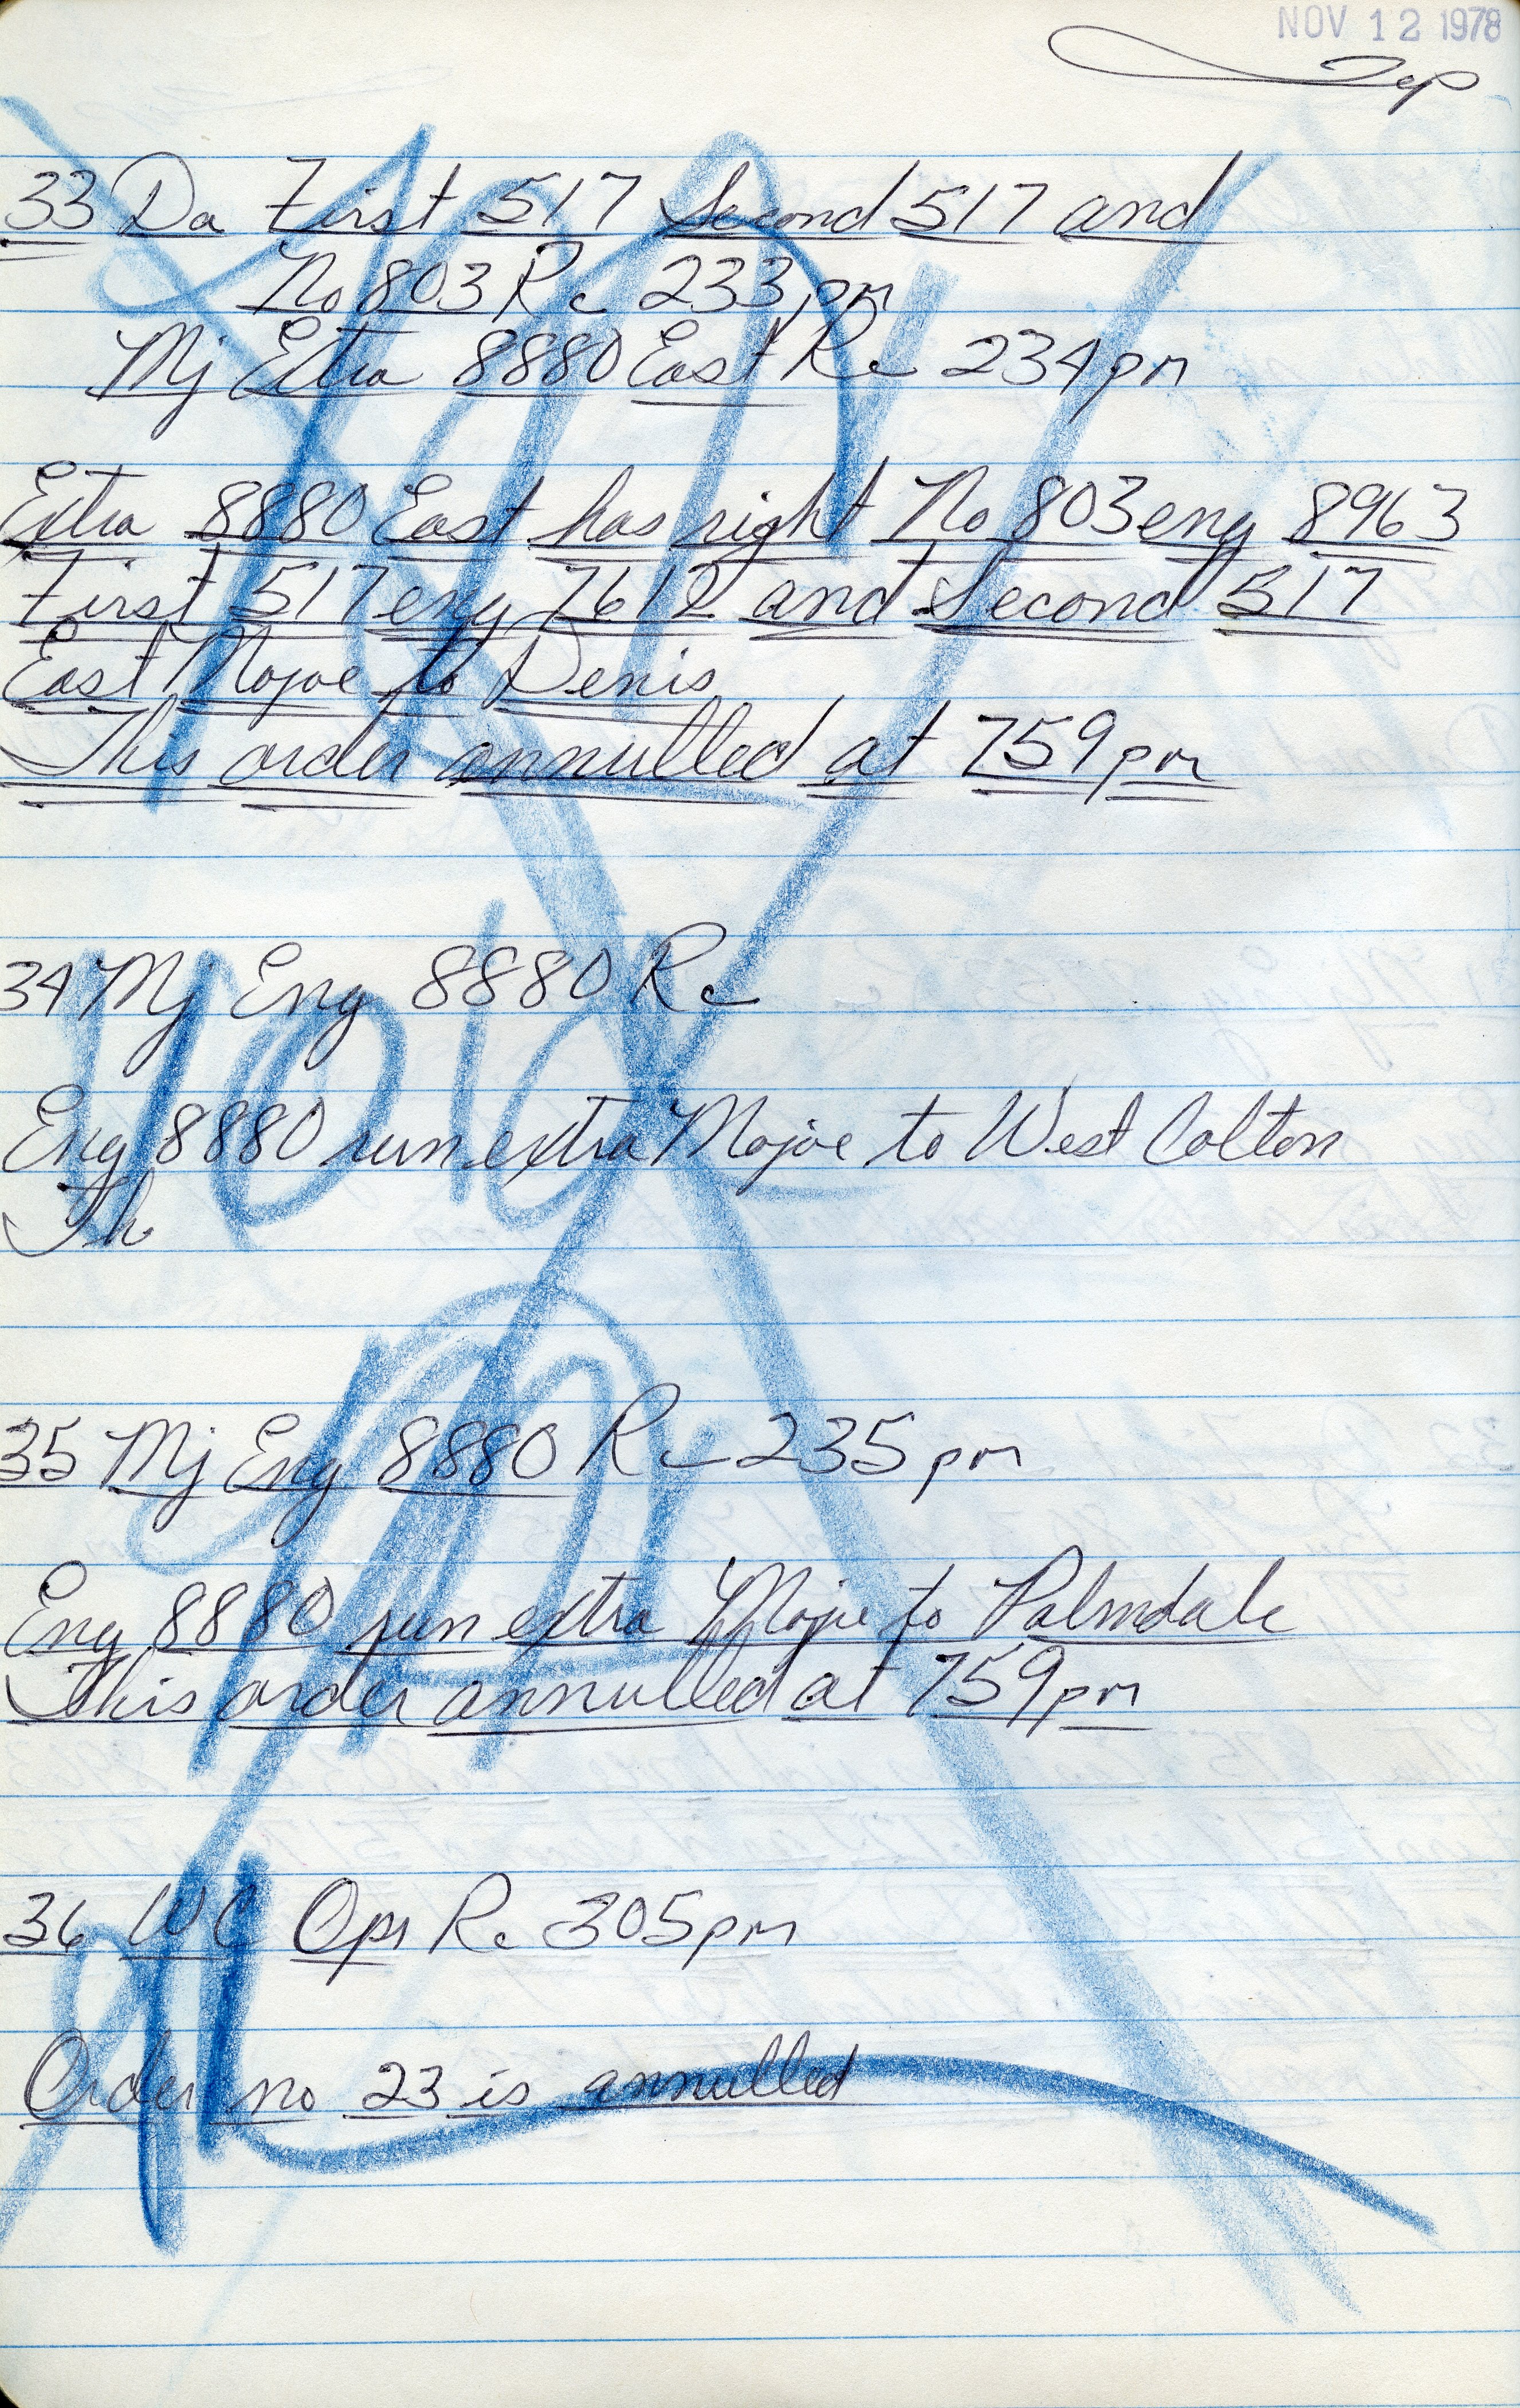 NOV 12 1978
33 Da First 517 Second 517 and
No 803 Rc 233pm
Mj Extra 8880 East Rc 234pm
Extra 8880 East has right No 803 eng 8963
First 517 eng 7612 and Second 517
East Mojave to Denis
This order annulled at 759pm
34 Mj Eng 8880 Rc
Void
Eng 8880 run extra Mojave to West Colton
Th
35 Mj Eng 8880 Rc 235pm
Eng 8880 run extra Mojave to Palmdale
This order annulled at 759pm
36 WC Opr Rc 305pm
Order no 23 is annulled